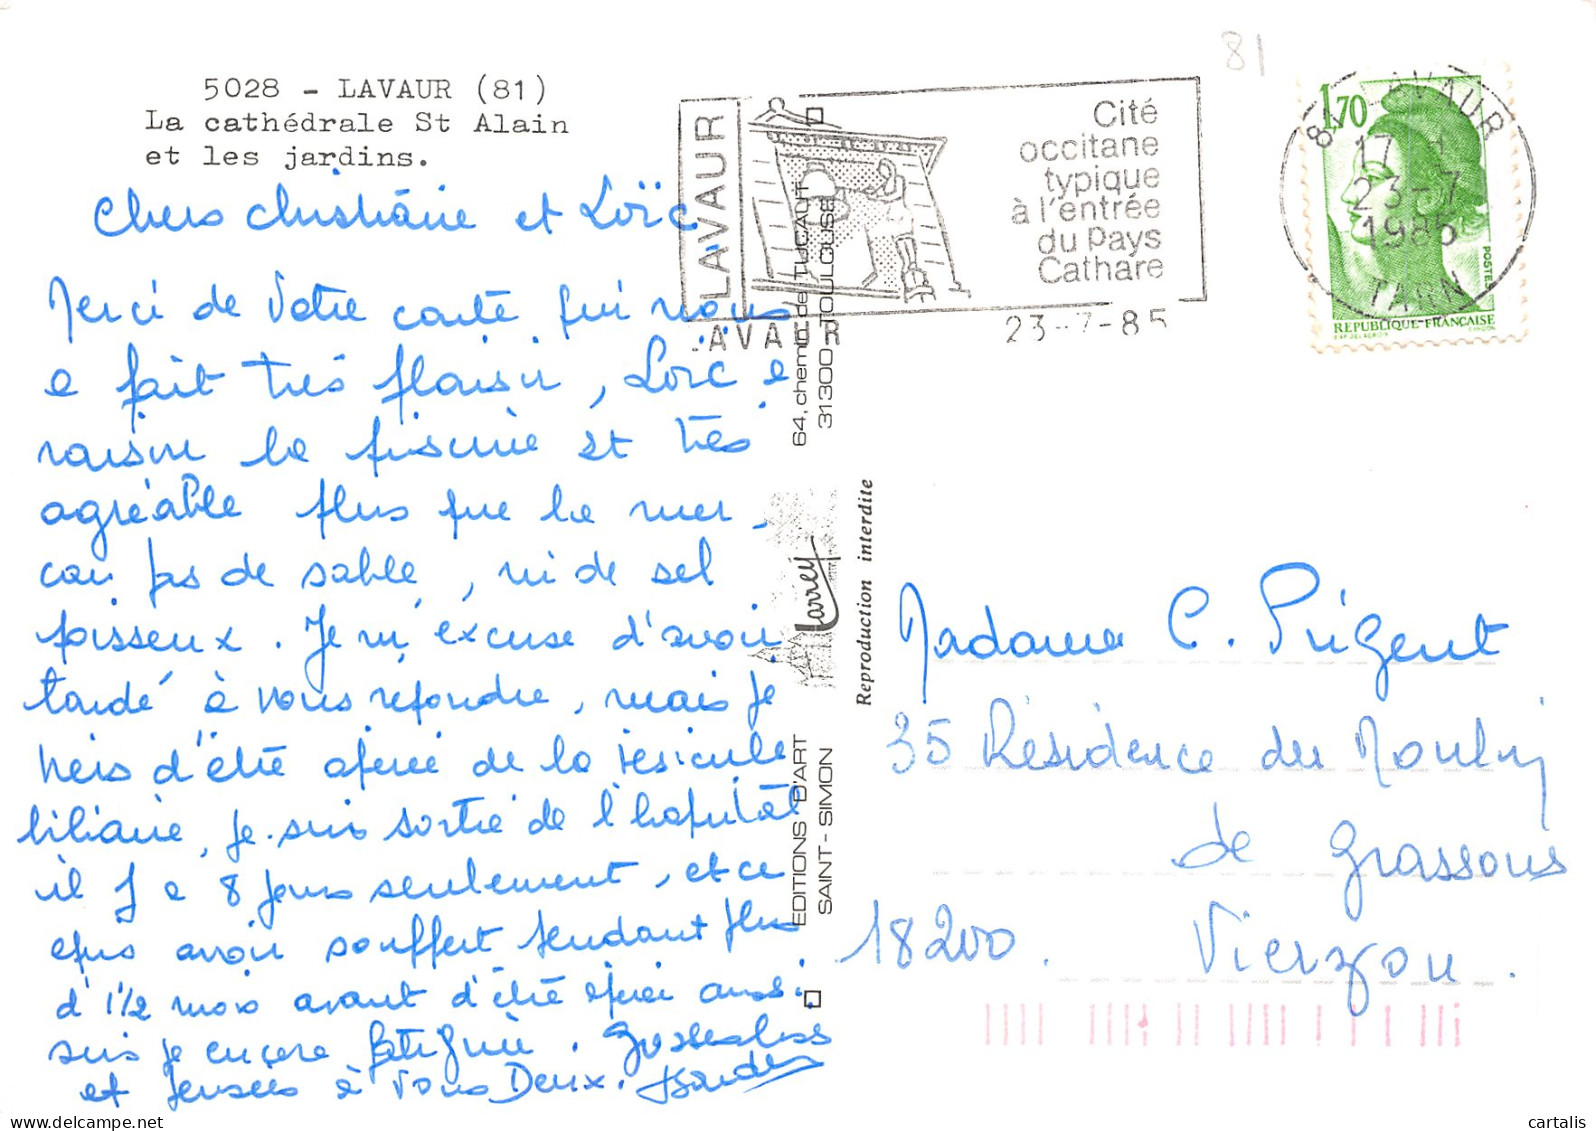 5028 - LAVAUR (81)
La cathédrale St Alain
et les jardins.
Chers Christiane et Loïc
Merci de votre carte qui nous
a fait très plaisir, Loïc a
raison la piscine est très
agréable plus que la mer,
car pas de sable, ni de sel
poisseux. Je m'excuse d'avoir
tardé à vous répondre, mais je
viens d'être opérée de la vésicule
biliaire, je suis sortie de l'hopital
il y a 8 jours seulement, et ce
après avoir souffert pendant plus
d'1 1/2 mois avant d'être opérée aussi
suis je encore fatiguée. Grosses bises
et pensées à vous Deux.
LAVAUR
Cité
occitane
typique
à l'entrée
du Pays
Cathare
LAVAUR
23-7-85
81 LAVAUR
17 H
23-7
1985
TARN
1,70
POSTES
REPUBLIQUE-FRANÇAISE
81
64, chemin de TUCAUT
31300 TOULOUSE
Larrey
EDITIONS D'ART
SAINT-SIMON
Reproduction interdite
Madame C. Prigent
35 Résidence du Moulin
de Grassous
18200. Vierzon.
cartalis
delcampe.net